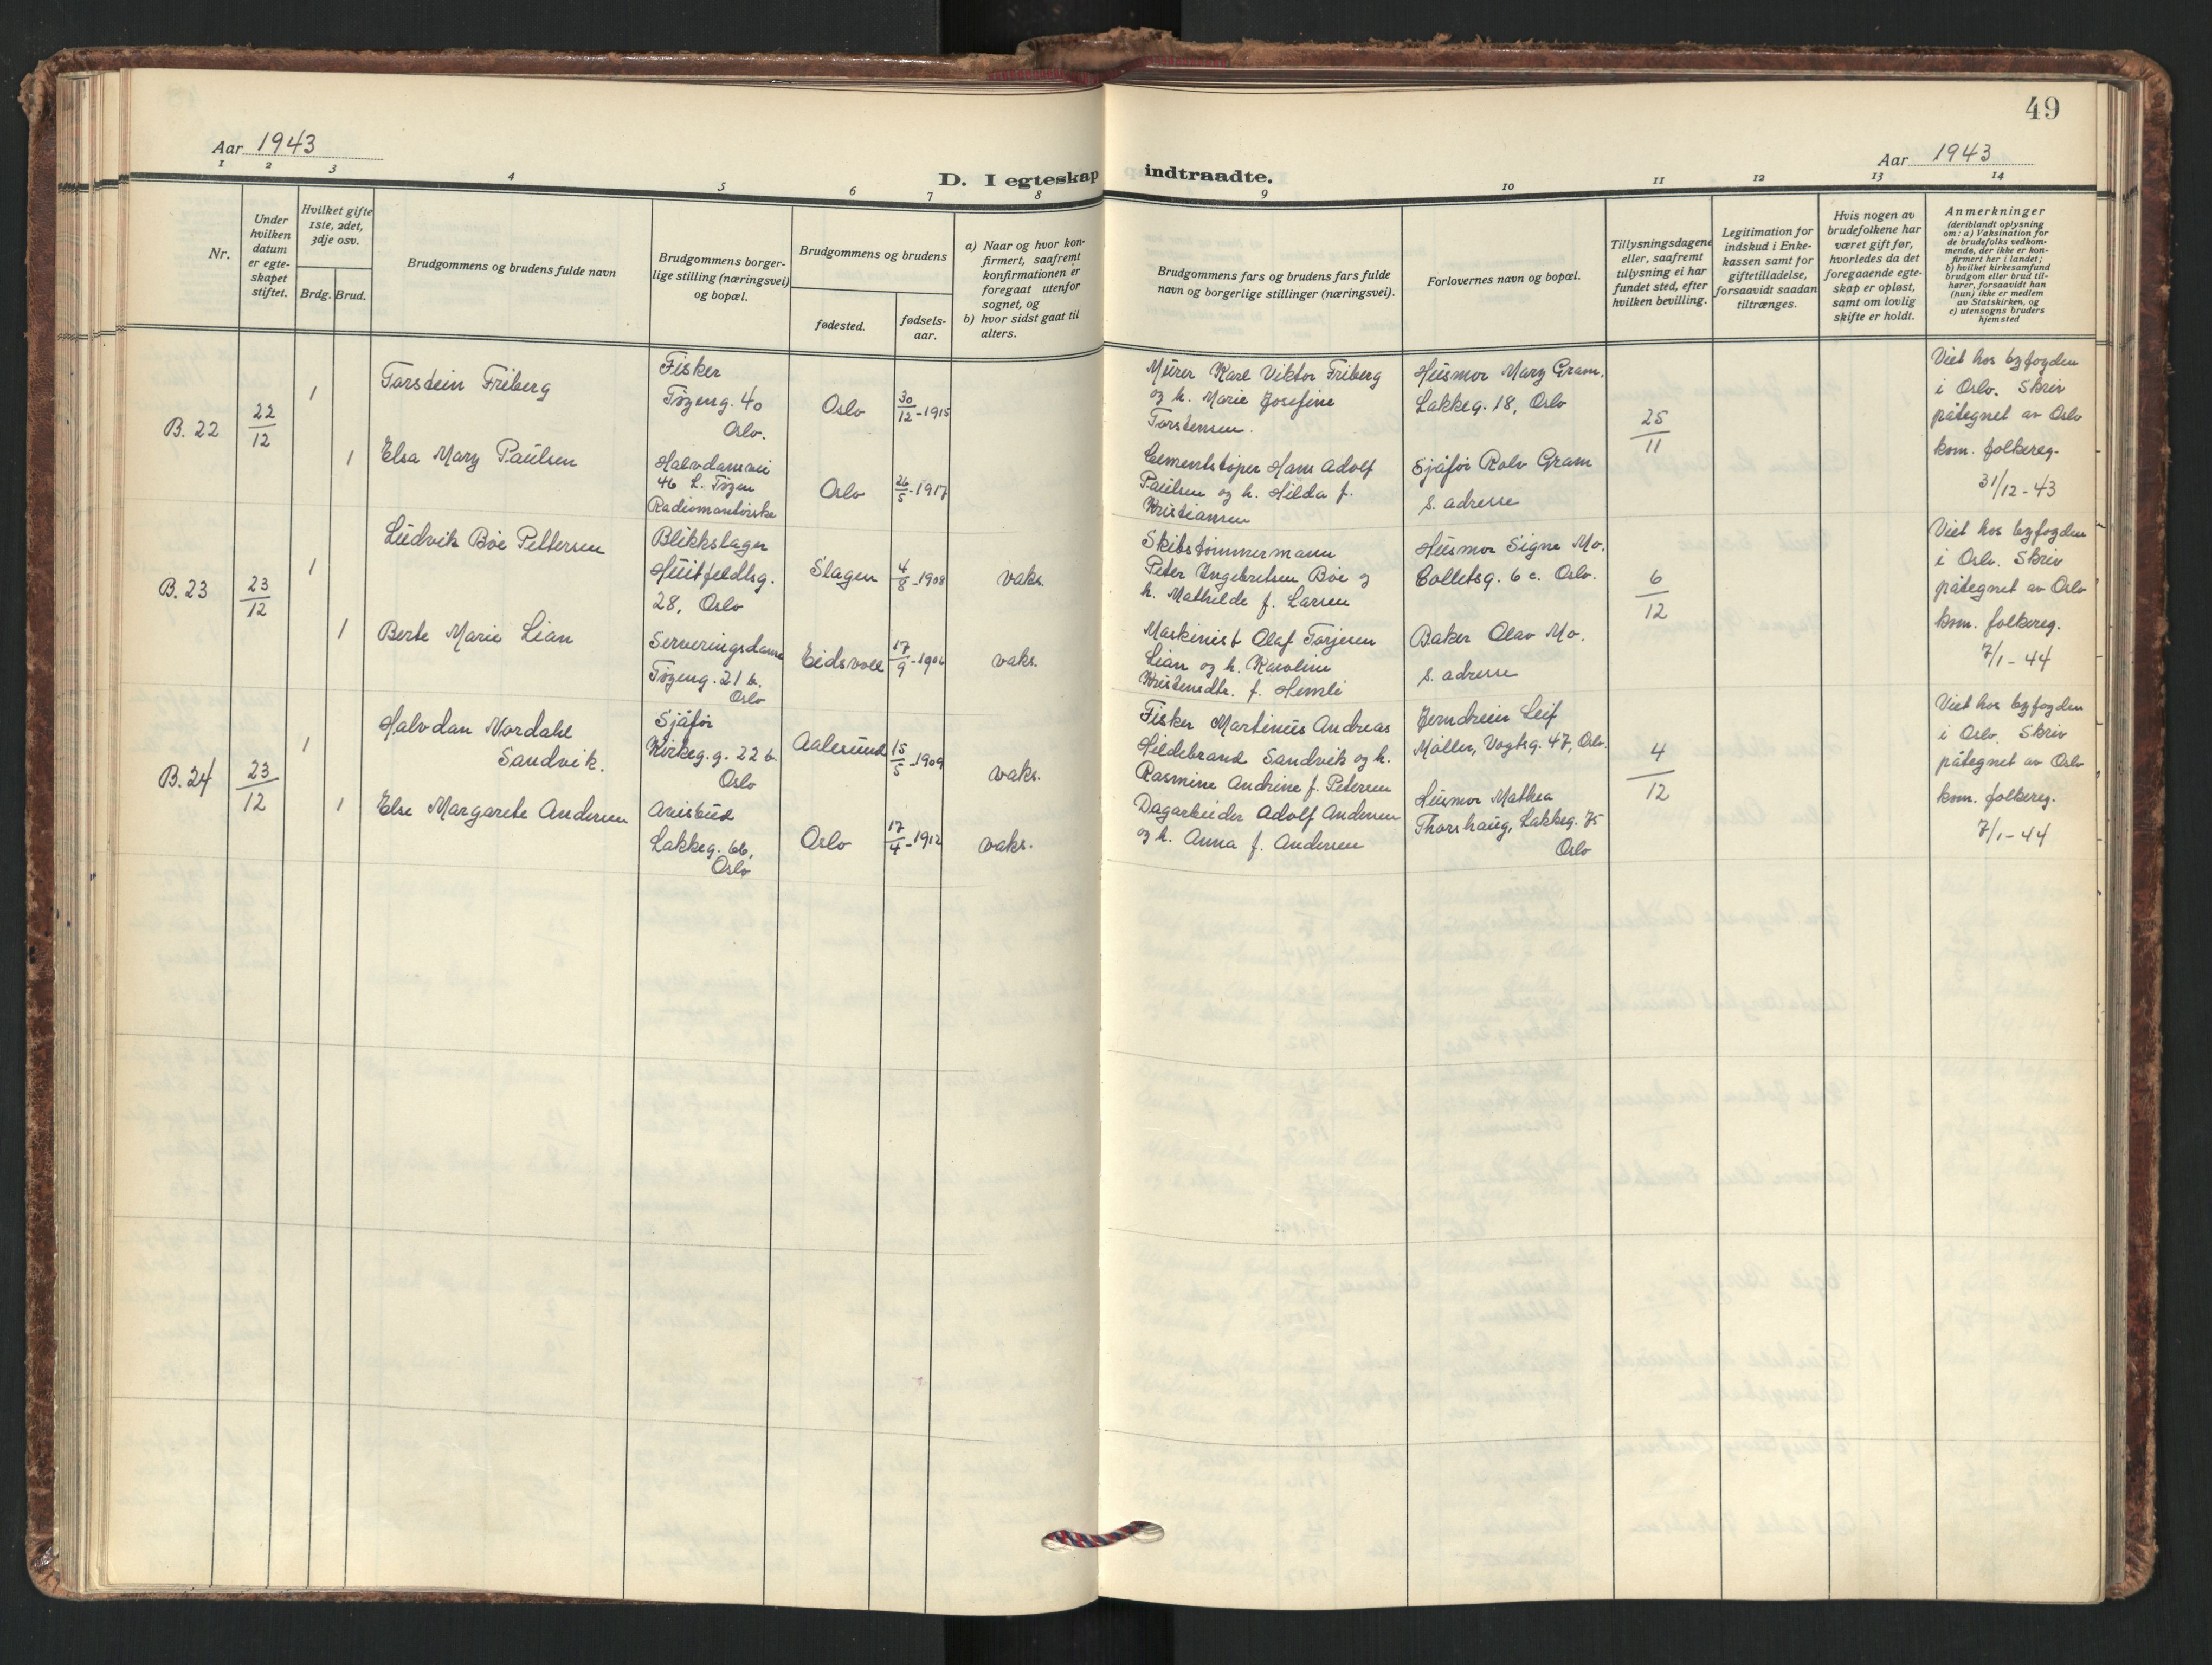 49
Aar 1943
Aar 1943
D. I egteskap indtraadte.
1 2 3 4 5 6 7 8 9 10 11 12 13 14
Nr.
Under
hvilken
datum
er egte-
skapet
stiftet.
Hvilket gifte
1ste, 2det,
3dje osv.
Brdg. Brud.
Brudgommens og brudens fulde navn
Brudgommens borger-
lige stilling (næringsvei)
og bopæl.
Brudgommens og brudens
fødested.
fødsels-
aar.
a) Naar og hvor kon-
firmert, saafremt
konfirmationen er
foregaat utenfor
sognet, og
b) hvor sidst gaat til
alters.
Brudgommens fars og brudens fars fulde
navn og borgerlige stillinger (næringsvei).
Forlovernes navn og bopæl.
Tillysningsdagene
eller, saafremt
tillysning ei har
fundet sted, efter
hvilken bevilling.
Legitimation for
indskud i Enke-
kassen samt for
giftetilladelse,
forsaavidt saadan
tiltrænges.
Hvis nogen av
brudefolkene har
været gift før,
hvorledes da det
foregaaende egte-
skap er opløst,
samt om lovlig
skifte er holdt.
Anmerkninger
(deriblandt oplysning
om: a) Vaksination for
de brudefolks vedkom-
mende, der ikke er kon-
firmert her i landet;
b) hvilket kirkesamfund
brudgom eller brud til-
hører, forsaavidt han
(hun) ikke er medlem
av Statskirken, og
c) utensogns bruders
hjemsted
B. 22
22/12
1
Torstein Friberg
Fisker
Tøyeng. 40
Oslo.
Oslo
30/12-1915
Murer Karl Viktor Friberg
og h. Marie Josefine
Torstensen.
Husmor Mary Gram,
Lakkeg. 18, Oslo
25/11
Viet hos byfogden
i Oslo. Skriv
påtegnet av Oslo
kom. folkereg.
31/12-43
1
Elsa Mary Paulsen
Halvdansvei
46 L. Tøyen
Radiomontørske
Oslo
26/5-1917
Cementstøper Hans Adolf
Paulsen og h. Hilda f.
Kristiansen
Sjåfør Rolv Gram
s. adresse
B. 23
23/12
1
Ludvik Bøe Pettersen
Blikkslager
Huitfeldtsg.
28, Oslo
Slagen
4/8-1908
vaks.
Skibstømmermann
Peter Ingebretsen Bøe og
h. Mathilde f. Larsen
Husmor Signe Mo.
Colletsg. 6 c. Oslo.
6/12
Viet hos byfogden
i Oslo. Skriv
påtegnet av Oslo
kom. folkereg.
7/1-44
1
Berte Marie Lian
Serveringsdame
Tøyeng. 21 b.
Oslo
Eidsvoll
17/9-1906
vaks.
Maskinist Olaf Torjesen
Lian og h. Karoline
Kristensdtr. f. Hemli
Baker Olav Mo.
s. adresse
B. 24
23/12
1
Halvdan Nordahl
Sandvik.
Sjåfør
Kirkeg. g. 22 b.
Oslo
Aalesund
15/5-1909
vaks.
Fisker Martinius Andreas
Hildebrand Sandvik og h.
Rasmine Andrine f. Petersen
Jerndreier Leif
Møller, Vogtsg. 47, Oslo.
4/12
Viet hos byfogden
i Oslo. Skriv
påtegnet av Oslo
kom. folkereg.
7/1-44
1
Else Margarete Andersen
Avisbud
Lakkeg. 66,
Oslo
Oslo
17/4-1912
vaks.
Dagarbeider Adolf Andersen
og h. Anna f. Andersen
Husmor Mathea
Thorshaug, Lakkeg. 75
Oslo